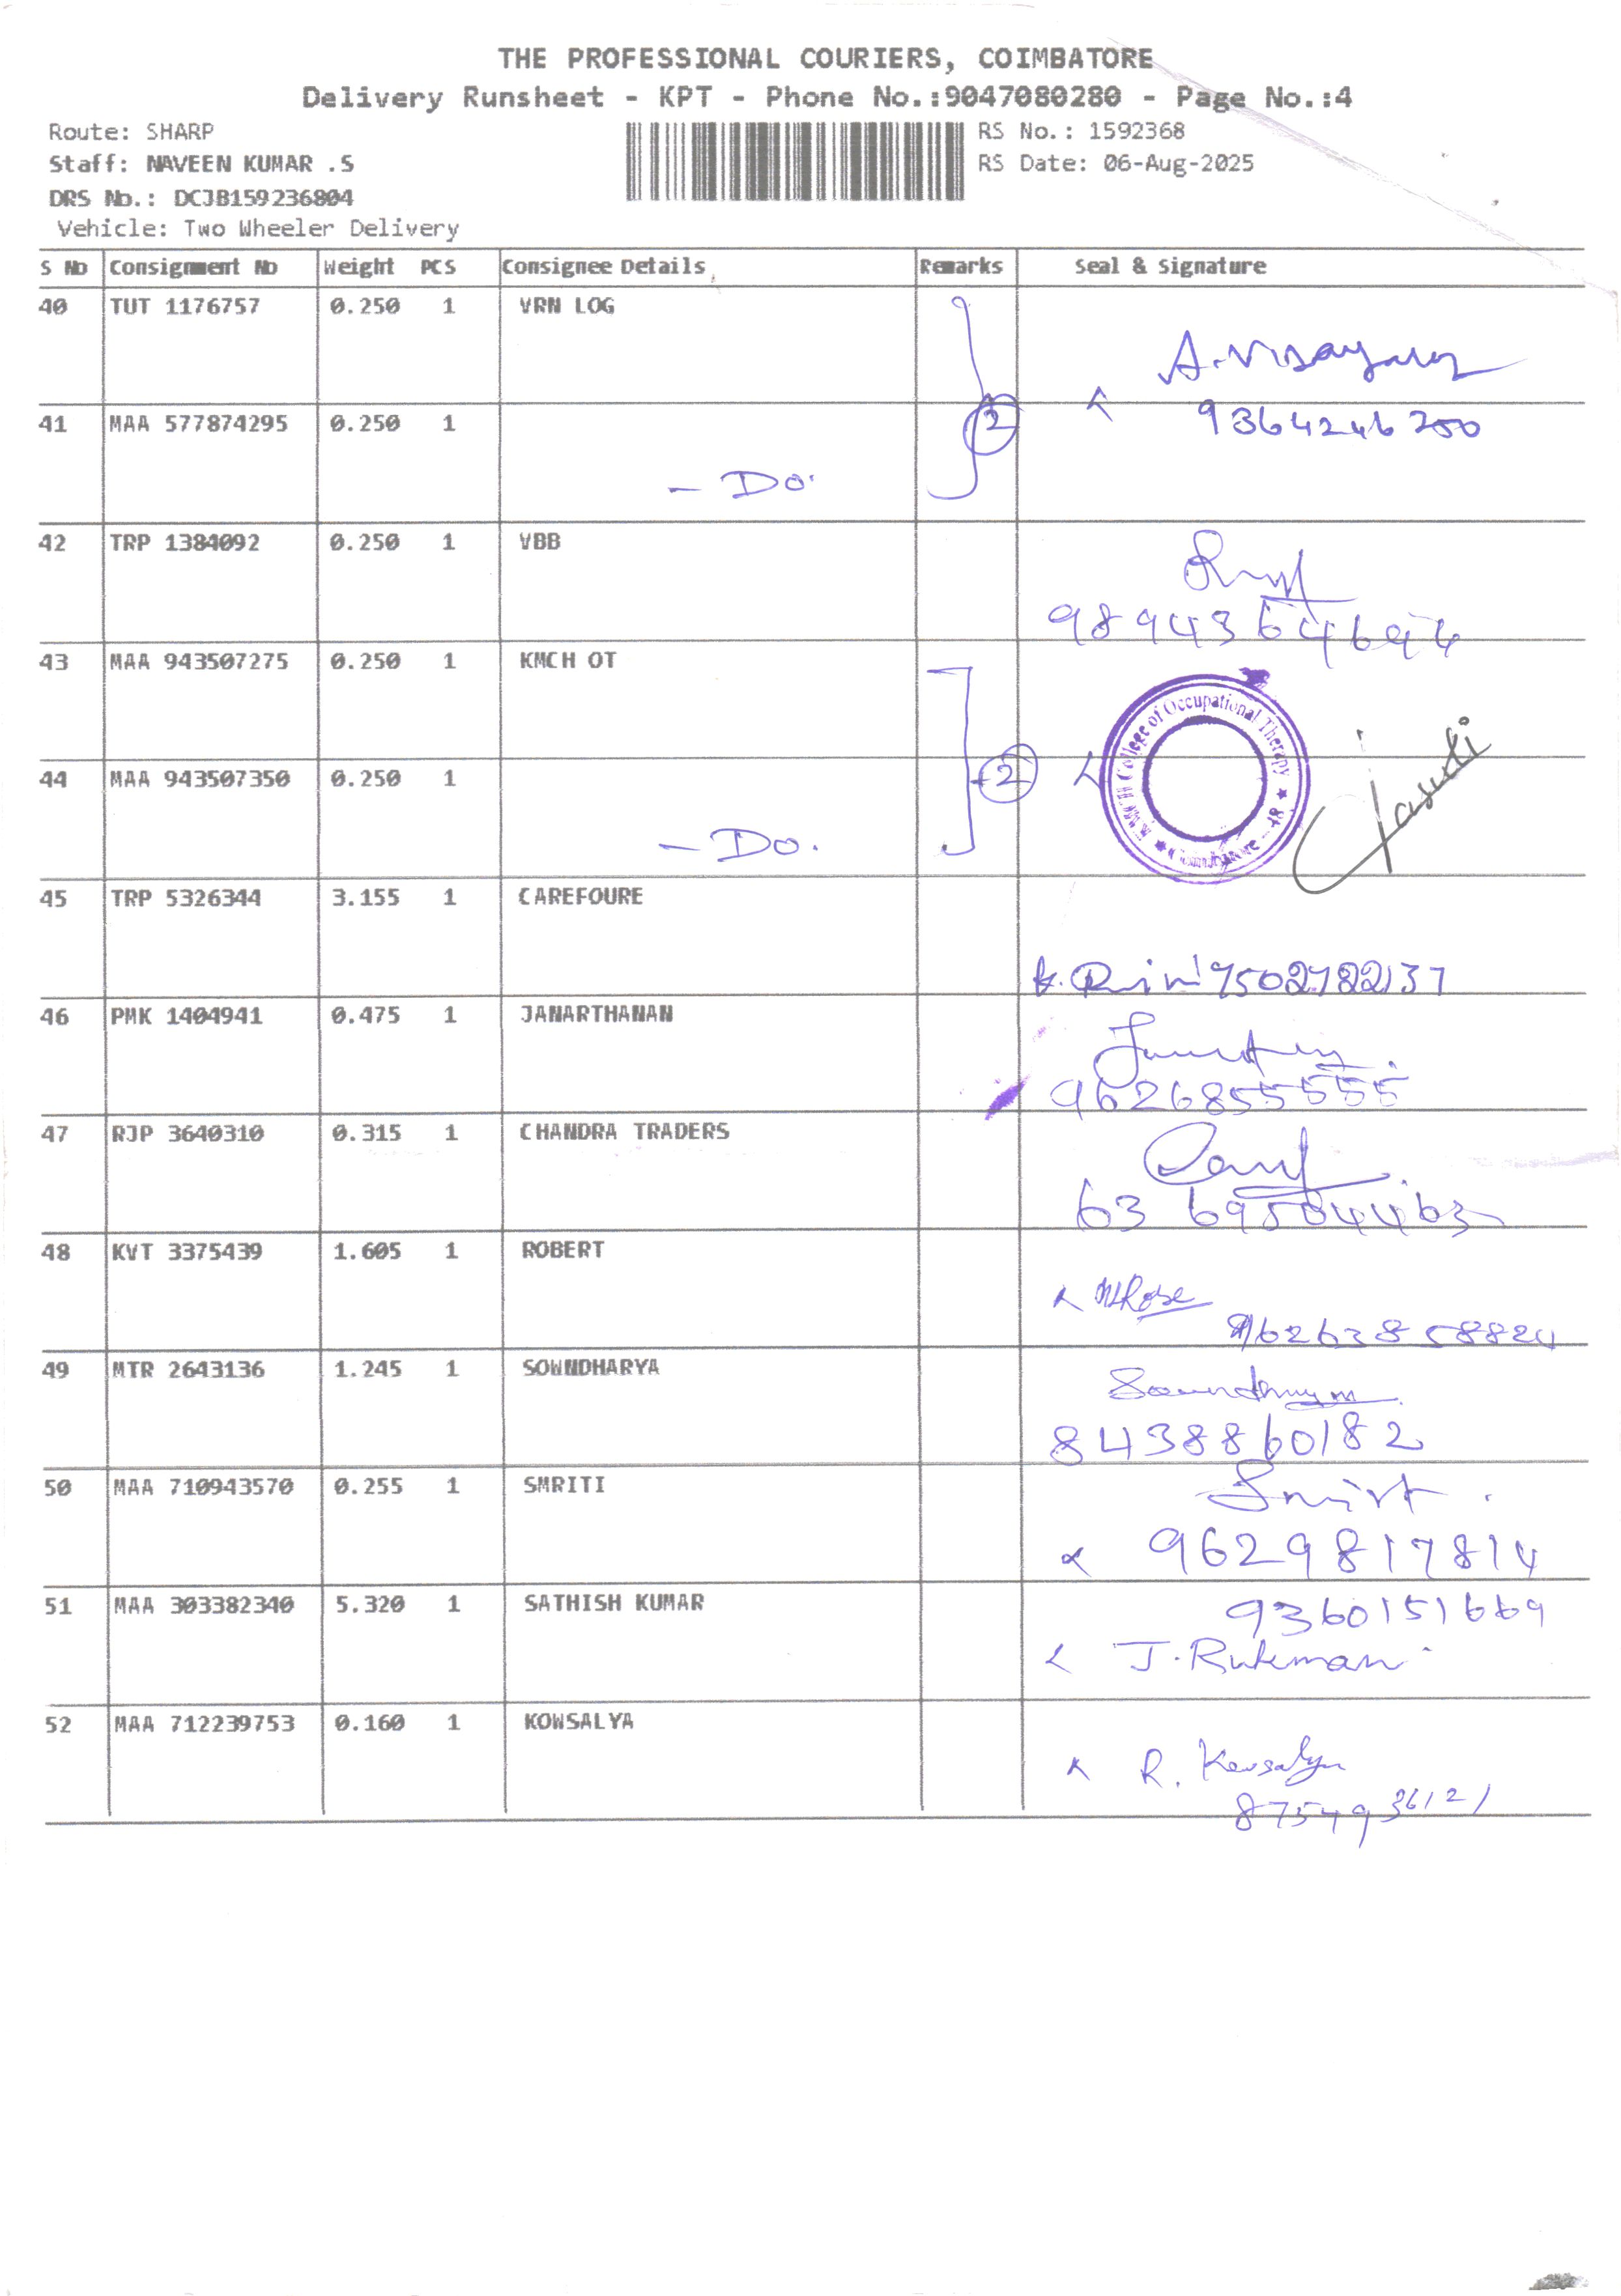 THE PROFESSIONAL COURIERS, COIMBATORE
Delivery Runsheet - KPT - Phone No.:9047080280 - Page No.:4
Route: SHARP
RS No.: 1592368
Staff: NAVEEN KUMAR .S
RS Date: 06-Aug-2025
DRS No.: DCJB159236804
Vehicle: Two Wheeler Delivery
S No Consignment No Weight PCS Consignee Details Remarks Seal & Signature
40 TUT 1176757 0.250 1 VRN LOG
41 MAA 577874295 0.250 1 2 9364246200
- Do.
42 TRP 1384092 0.250 1 VBB
9894364694
43 MAA 943507275 0.250 1 KMCH OT
College of Occupational Therapy
44 MAA 943507350 0.250 1 2
- Do.
45 TRP 5326344 3.155 1 CAREFOURE
46 PMK 1404941 0.475 1 JANARTHANAN
9626855555
47 RJP 3640310 0.315 1 CHANDRA TRADERS
63 69504463
48 KVT 3375439 1.605 1 ROBERT
49 MTR 2643136 1.245 1 SOWNDHARYA
8438860182
50 MAA 710943570 0.255 1 SMRITI
9629817814
51 MAA 303382340 5.320 1 SATHISH KUMAR 9360151669
J. Rukman
52 MAA 712239753 0.160 1 KOWSALYA
R. Kowsalya
8754936121